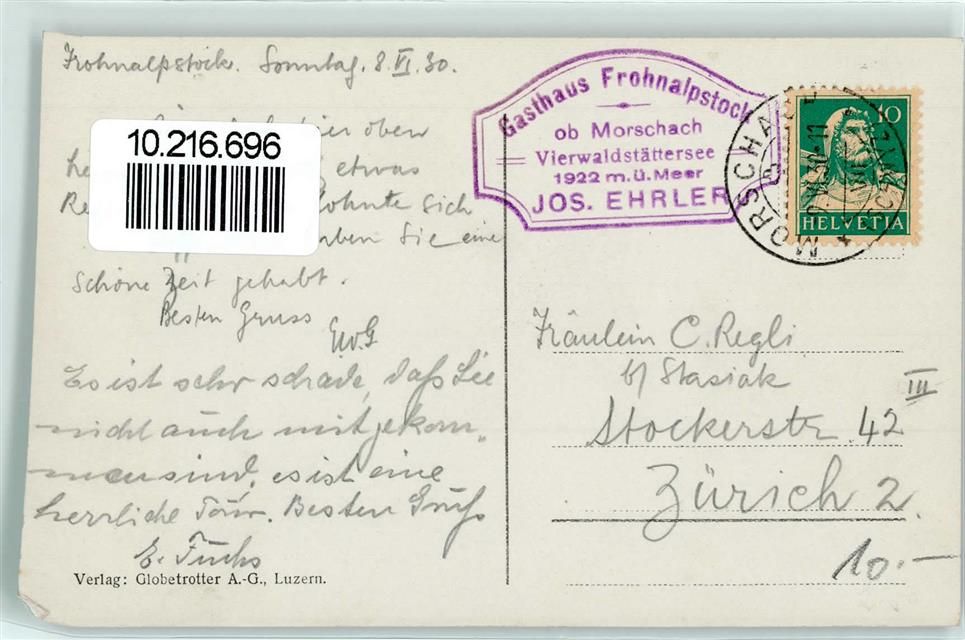 Frohnalpstock. Sonntag, 8.VI.30.
hier oben
10.216.696
etwas
lohnte sich
haben Sie eine
schöne Zeit gehabt.
Besten Gruss
EvG
Es ist sehr schade, daß Sie
nicht auch mitgekom-
men sind, es ist eine
herrliche Tour. Besten Gruß
E. Fuchs
Verlag: Globetrotter A.-G., Luzern.
Gasthaus Frohnalpstock
ob Morschach
Vierwaldstättersee
1922 m.ü.Meer
JOS. EHRLER
10
HELVETIA
MORSCHACH
(SCHWYZ)
Fräulein C. Regli
b/ Stasiak
III
Stockerstr. 42
Zürich 2.
10.-